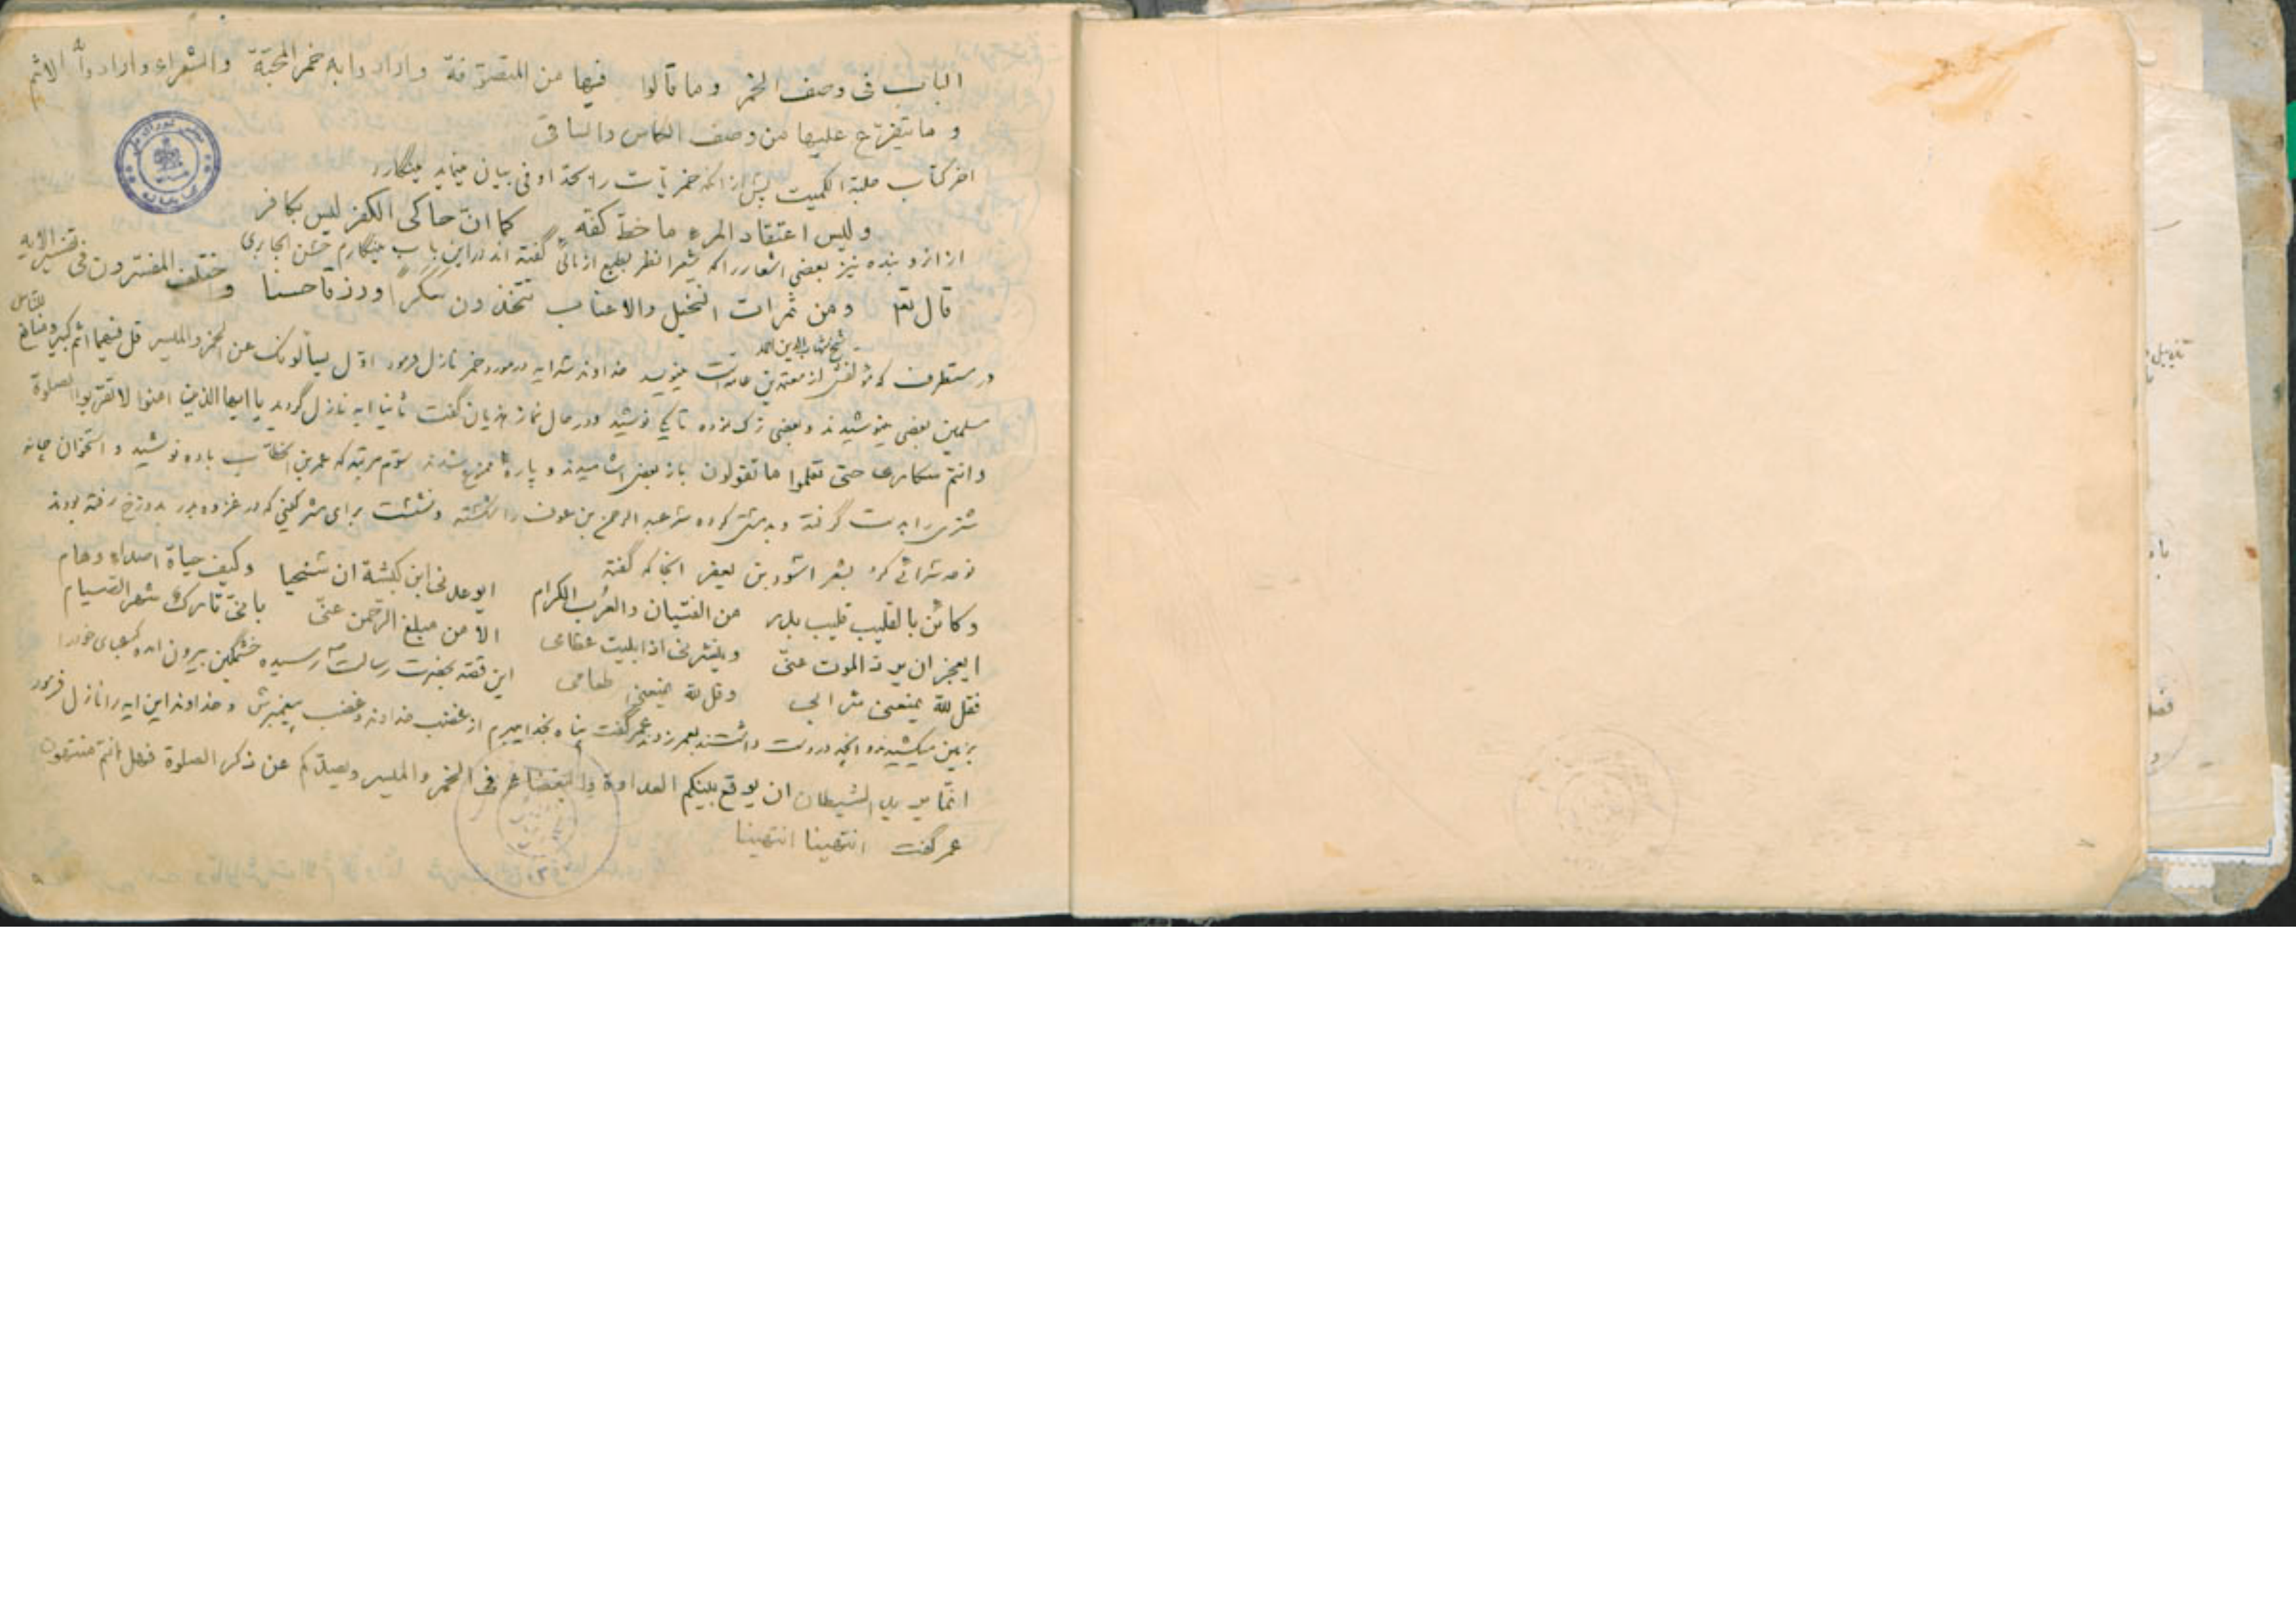 الباب فی وصف الخمر وما قالوا فیها من المتصوّفة وارادوا به خمر المحبّة والشعراء وارادوا الاثم
و ما یتفرّع علیها من وصف الکاس والساقی
اخر کتاب حلبة الکمیت پیش از انکه خمریات را بیان مینماید مینگارد
ولیس اعتقاد المرء ما خطّ کفّه کما انّ حاکی الکفر لیس بکافر
از انرو بنده نیز بعضی اشعار را که شعرا گفته اند در این باب مینگارم حسن الجابری
قال تع ومن ثمرات النخیل والاعناب تتخذون سکراً ورزقا حسنا و ختلف المفسّرون فی تفسیر الایه
شیخ شهاب الدین احمد
در مستطرف که مؤلفش از معتمدین عامه است مینویسد خداوند سه ایه در مورد خمر نازل فرمود اوّل یسألونک عن الخمر والمیسر قل فیهما اثم کبیر ومنافع للناس
مسلمین بعضی مینوشیدند و بعضی ترک نموده تا یکی نوشید و در حال نماز هذیان گفت ثانیا ایه نازل گردید یا ایها الذین امنوا لا تقربوا الصلوة
وانتم سکاری حتی تعلموا ما تقولون باز بعضی اشامیدند و پاره ممنوع شدند سوّم مرتبه که عمر بن الخطاب باده نوشید و استخوان چانه
شتری را بدست گرفته و سر عبد الرحمن بن عوف را شکسته و نشست برای مشرکینی که در غزوه بدر بدوزخ رفته بودند
نوحه سرائی کرد بشعر اسود بن یعفر انجا که گفته
وکائن بالقلیب قلیب بدر من الفتیان والعرب الکرام ایوعدنی ابن کبشة ان سنحیا وکیف حیاة اصداء وهام
ایعجز ان یردّ الموت عنّی وینشرنی اذا بلیت عظامی الا من مبلغ الرّحمن عنّی بانّی تارک شهر الصّیام
فقل لله یمنعنی شرابی وقل لله یمنعنی طعامی این قصّه بحضرت رسالت رسیده خشمگین بیرون امده عبای خود را
بزمین میکشیدند و انچه در دست داشتند بعمر زدند عمر گفت پناه بخدا میبرم از غضب خداوند و غضب پیغمبرش و خداوند این ایه را نازل فرمود
انّما یرید الشیطان ان یوقع بینکم العداوة والبغضاء فی الخمر والمیسر ویصدّکم عن ذکر الصلوة فهل انتم منتهون
عمر گفت انتهینا انتهینا